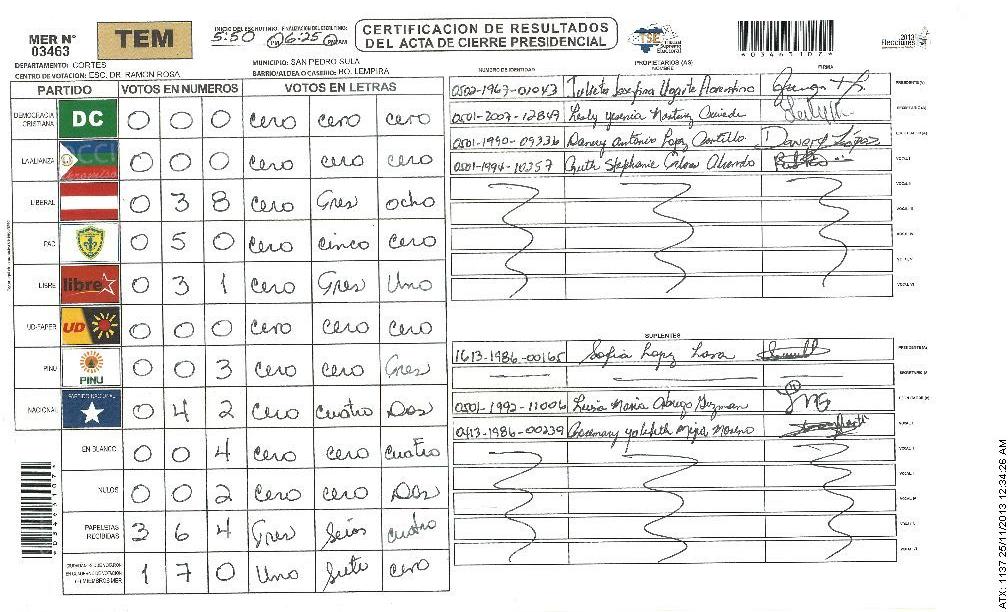 MER N° 03463
TEM
INICIO DEL ESCRUTINIO: 5:50 PM FINALIZACION DEL ESCRUTINIO: 6:25 PM AM
CERTIFICACION DE RESULTADOS
DEL ACTA DE CIERRE PRESIDENCIAL
TSE Tribunal Supremo Electoral
2013 Elecciones
DEPARTAMENTO: CORTES
MUNICIPIO: SAN PEDRO SULA
CENTRO DE VOTACION: ESC. DR. RAMON ROSA
BARRIO/ALDEA O CASERIO:
PARTIDO VOTOS EN NUMEROS VOTOS EN LETRAS
DEMOCRACIA CRISTIANA DC 0 0 0 Cero Cero Cero
LA ALIANZA 0 0 0 Cero Cero Cero
LIBERAL 0 3 8 Cero Tres ocho
PAC 0 5 0 Cero Cinco Cero
LIBRE libre 0 3 1 Cero Tres Uno
UD-FAPER UD 0 0 0 Cero Cero Cero
PINU PINU 0 0 3 Cero Cero Tres
NACIONAL PARTIDO NACIONAL 0 4 2 Cero Cuatro Dos
EN BLANCO 0 0 4 Cero Cero Cuatro
NULOS 0 0 2 Cero Cero Dos
PAPELETAS RECIBIDAS 3 6 4 Tres Seis cuatro
1 7 0 Uno Siete cero
PROPIETARIOS (AS)
NUMERO DE IDENTIDAD NOMBRE FIRMA
0502-1967-01043 Julieta Josefina Ugarte Florentino
0501-2007-12849 Lesly Yesenia Martinez
0501-1990-09336 Danny Antonio Lopez Castillo
0501-1994-10257 Ruth Stephanie
SUPLENTES
1613-1986-00165 Sofia Lopez Lara
0501-1992-11006 Luisa Maria Guzman
0413-1986-00239 Rosemary Mejia Moreno
ATX: 1137 25/11/2013 12:34:26 AM